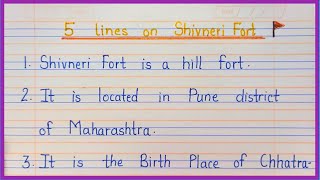 5 lines on Shivneri Fort
1. Shivneri Fort is a hill fort.
2. It is located in Pune district
of Maharashtra.
3. It is the Birth Place of Chhatra-